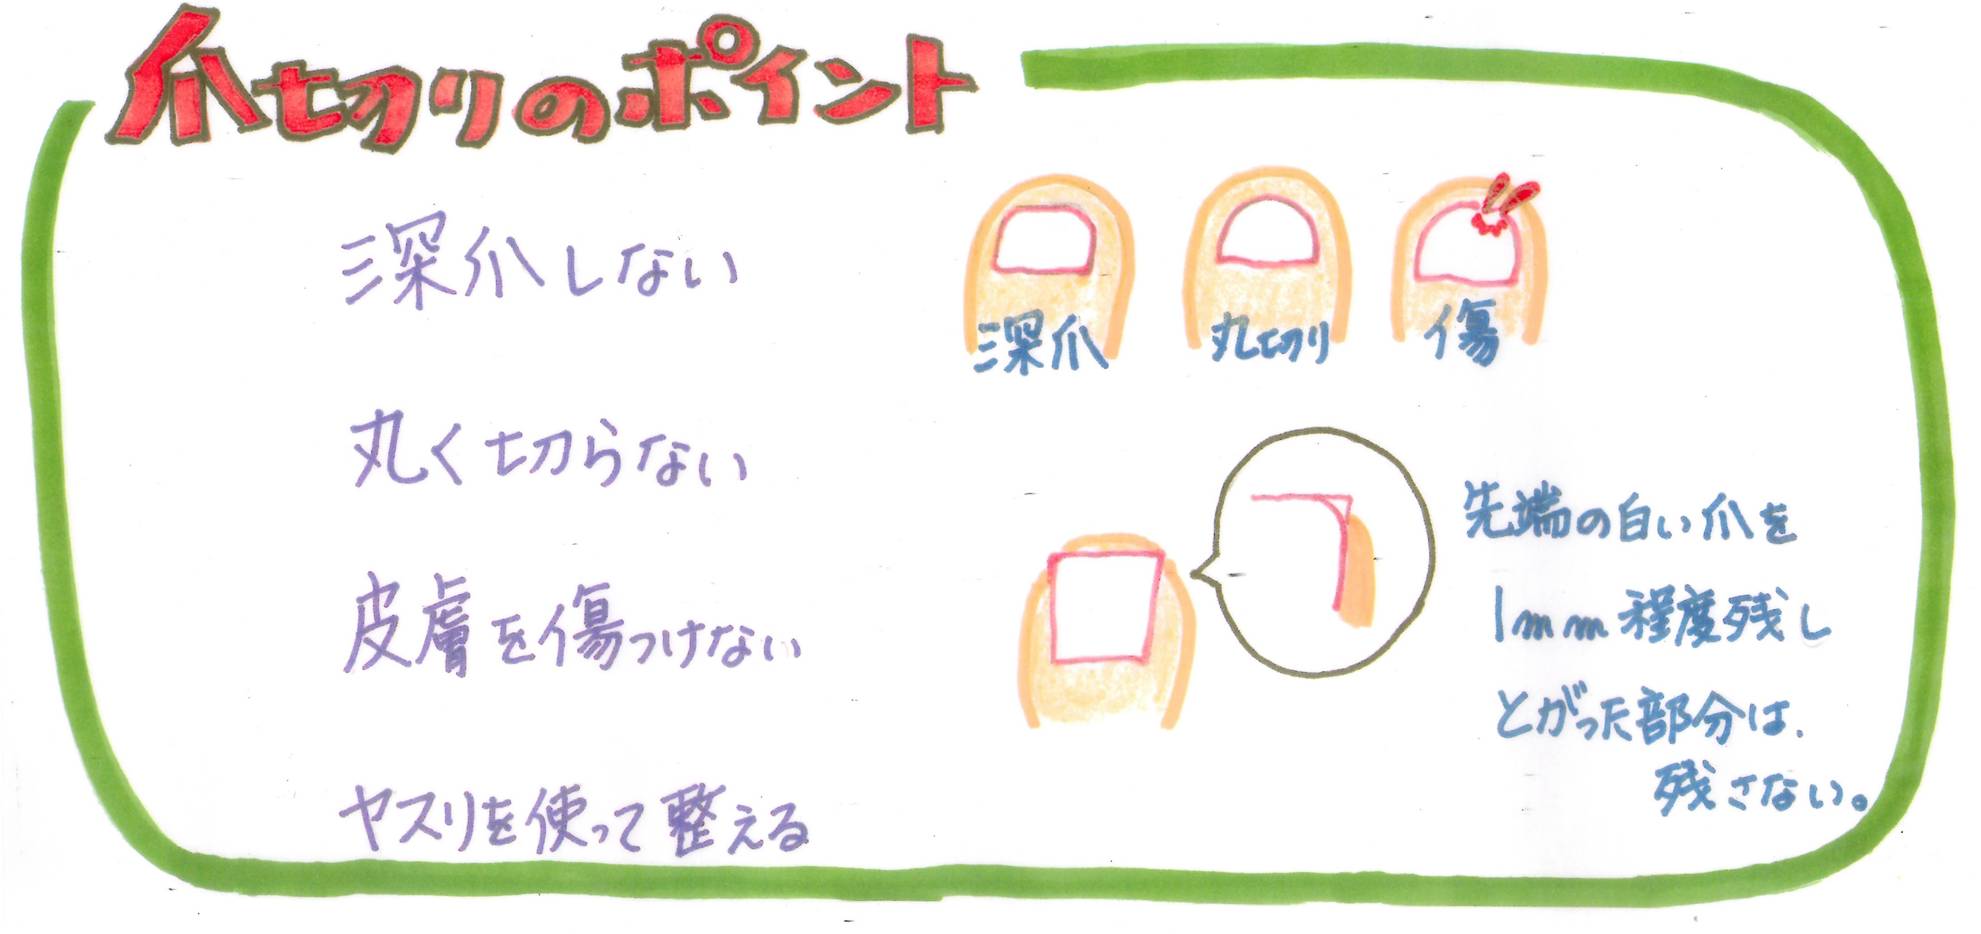 爪切りのポイント
深爪しない
丸く切らない
皮膚を傷つけない
ヤスリを使って整える
深爪
丸切り
傷
先端の白い爪を
1mm程度残し
とがった部分は、
残さない。